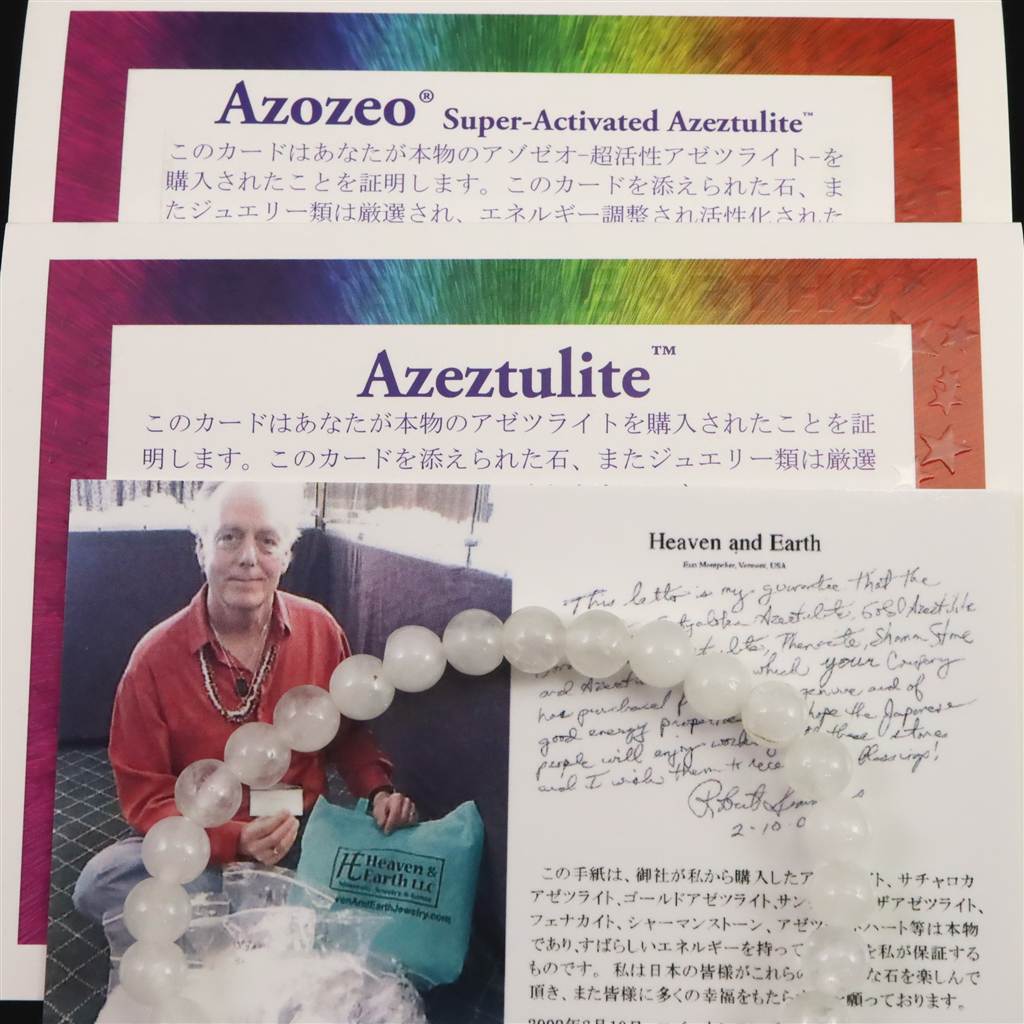 Azozeo® Super-Activated Azeztulite™
このカードはあなたが本物のアゾゼオ-超活性アゼツライト-を
購入されたことを証明します。このカードを添えられた石、ま
たジュエリー類は厳選され、エネルギー調整され活性化された
Azeztulite™
このカードはあなたが本物のアゼツライトを購入されたことを証
明します。このカードを添えられた石、またジュエリー類は厳選
Heaven and Earth
East Montpelier, Vermont, USA
This letter is my guarantee that the
Azeztulite, Gold Azeztulite
Phenacite, Shaman Stone
and which your Company
has purchased genuine and of
good energy properties hope the Japanese
people will enjoy working these stones
and I wish them to blessings!
Robert
2-10-0
HE Heaven &
Earth LLC
Minerals, Jewelry & Gems
venAndEarthJewelry.com
この手紙は、御社が私から購入したア ト、サチャロカ
アゼツライト、ゴールドアゼツライト、サン ザアゼツライト、
フェナカイト、シャーマンストーン、アゼツ ハート等は本物
であり、すばらしいエネルギーを持って を私が保証する
ものです。 私は日本の皆様がこれら な石を楽しんで
頂き、また皆様に多くの幸福をもたら 願っております。